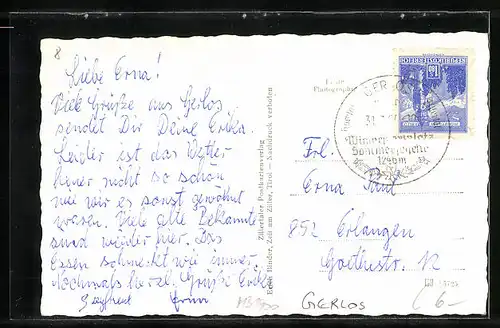 8
Liebe Erna!
Viele Grüße aus Gerlos
sendet Dir Deine Erika.
Leider ist das Wetter
heuer nicht so schön
wie wir es sonst gewöhnt
waren. Viele alte Bekannte
sind wieder hier. Das
Essen schmeckt wie immer.
Nochmals herzl. Grüße Erika
Siegfried Erwin
Zillertaler Postkartenverlag
Ernst Binder, Zell am Ziller, Tirol — Nachdruck verboten
Echte
Photographie
REPUBLIK ÖSTERREICH
GERLOS
31.
Wintersportplatz
Sommerfrische
1246m
Frl.
Erna Paul
852 Erlangen
Goethestr. 12
GERLOS
6-